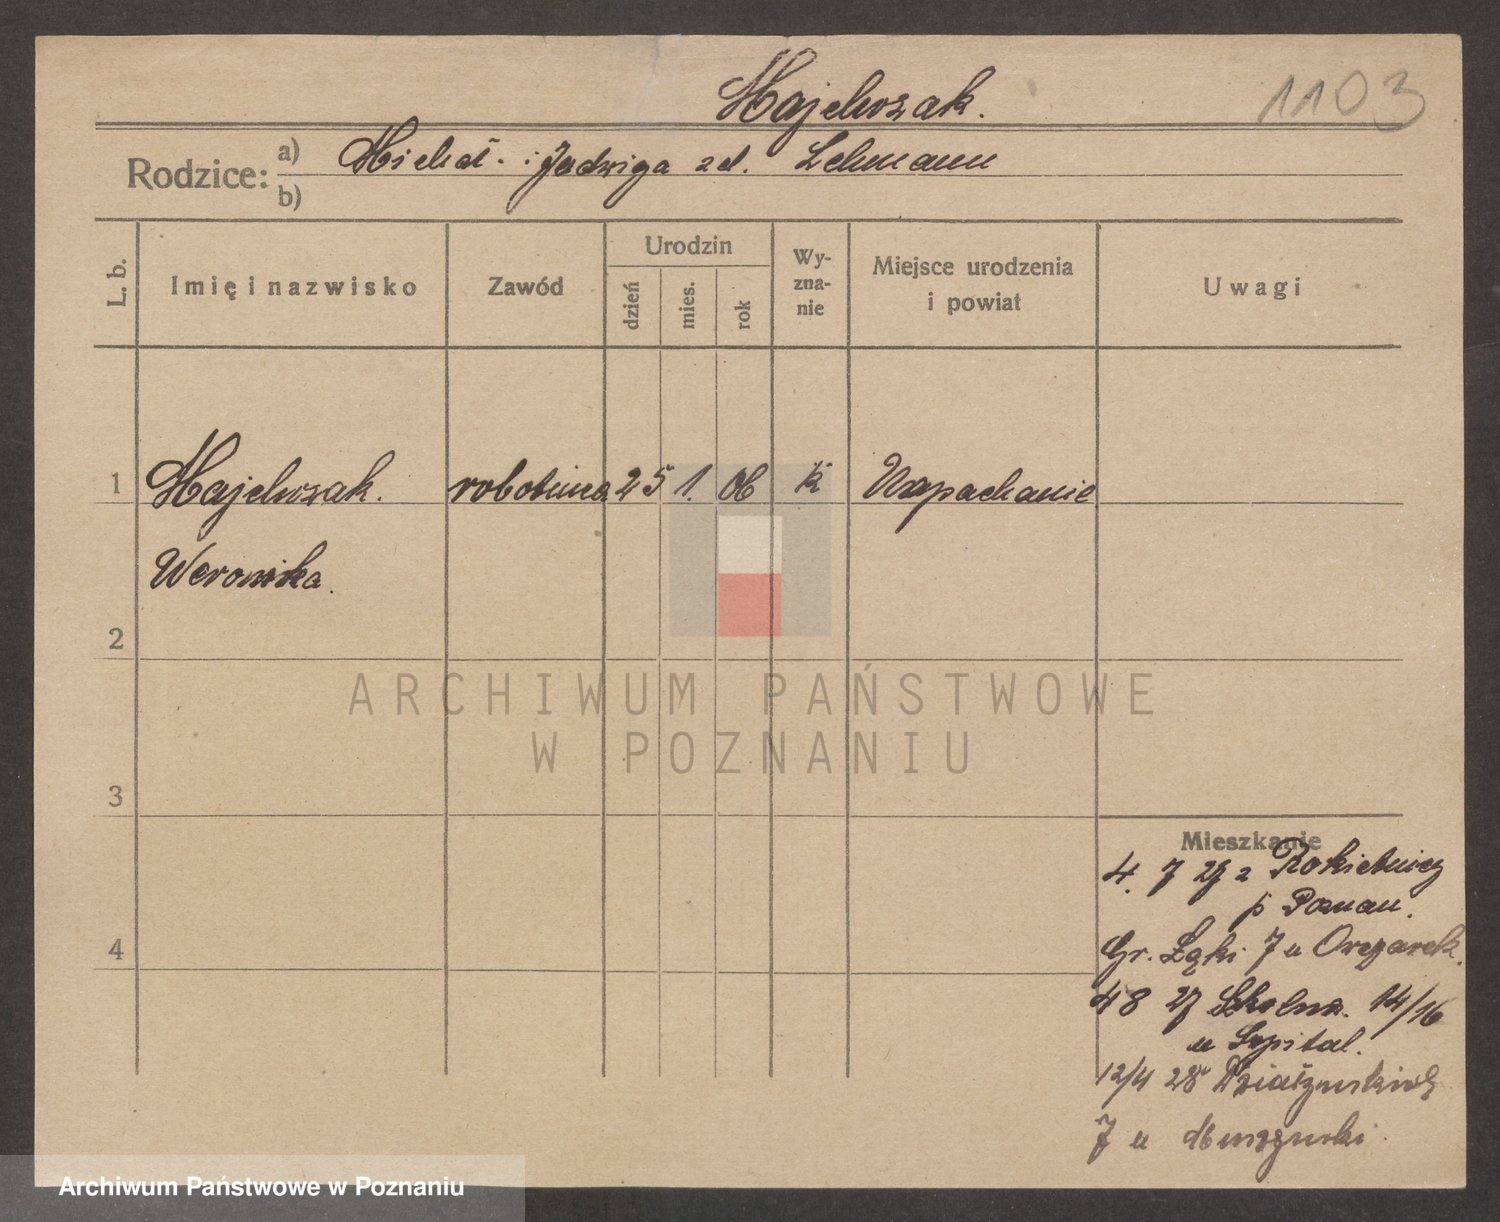 Majchrzak.
1103
Rodzice: a) Michał. i Jadwiga zd. Lehmann
b)
L. b. Imię i nazwisko Zawód Urodzin dzień mies. rok Wyznanie Miejsce urodzenia i powiat Uwagi
1 Majchrzak. robotnica 25 1. 06 k Napachanie
Weronika.
2
3
4
Mieszkanie
4. 7 27 z Rokietnicy
p Poznań.
Gr. Łąki 7 u Owczarek.
4 8 27 Szkolna. 14/16
u Szpital.
12/4 28 Działyńskich
7 u Muszyński.
ARCHIWUM PAŃSTWOWE
W POZNANIU
Archiwum Państwowe w Poznaniu